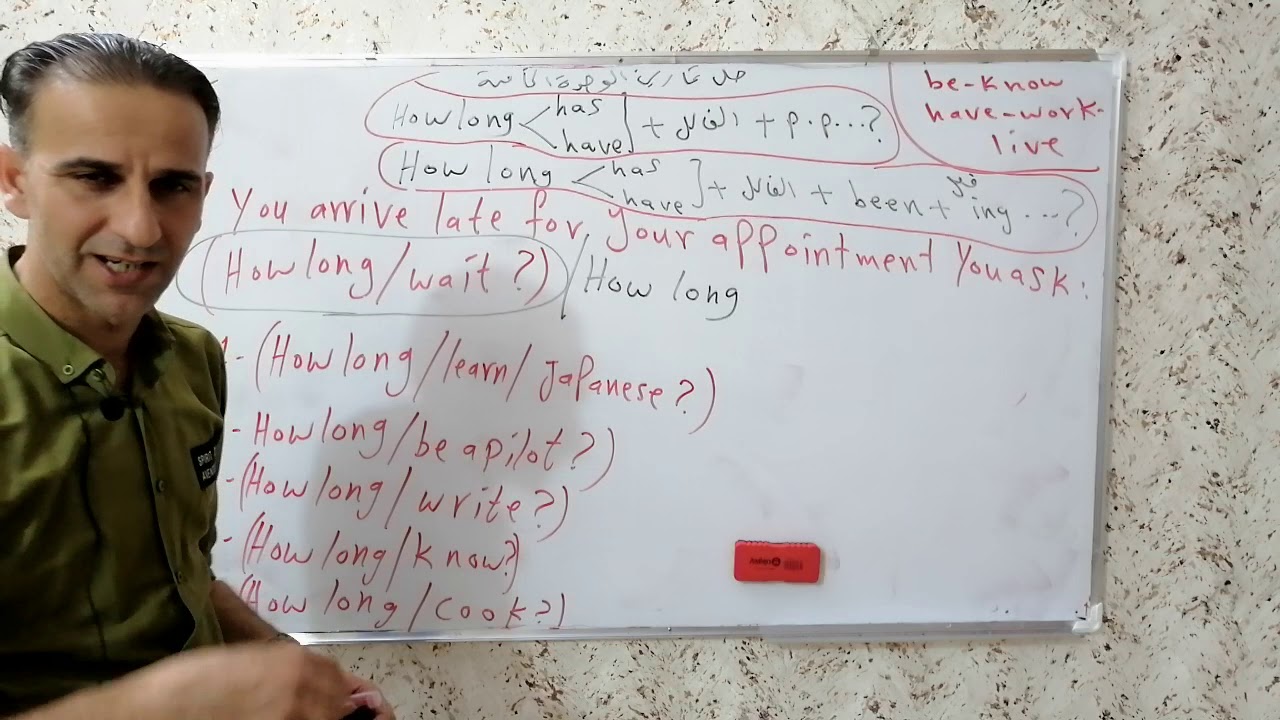 حل تمارين الوحدة الثامنة
How long has have + الفاعل + p.p...?
How long has have + الفاعل + been + فعل ing ...?
be-know
have-work-
live
You arrive late for your appointment You ask:
(How long/wait?) / How long
1-(How long/learn/Japanese?)
-How long/be a pilot?)
-(How long/write?)
-(How long/know?)
(How long/cook?)
SPIRIT